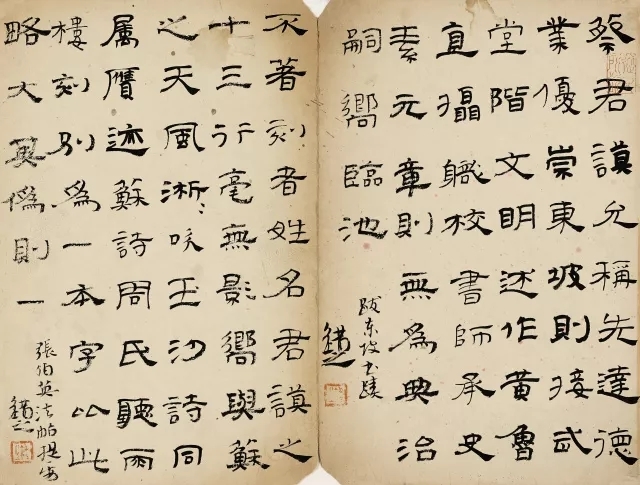 蔡君謨允稱先達德
業優崇東坡則接武
堂階文明述作黃魯
直攝職校書師承史
素元章則無為典治
嗣嚮臨池
跋東坡書蹟
不著刻者姓名君謨之
十三行毫無影嚮與蘇
之天風淅〻吹玉沙詩同
屬贋迹蘇詩周氏聽雨
樓刻別為一本字以此
略大其偽則一
張伯英法帖提要